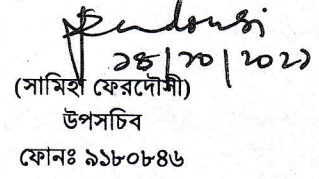 ২৪/১০/২০২১
(সামিহা ফেরদৌসী)
উপসচিব
ফোনঃ ৯১৮০৮৪৬